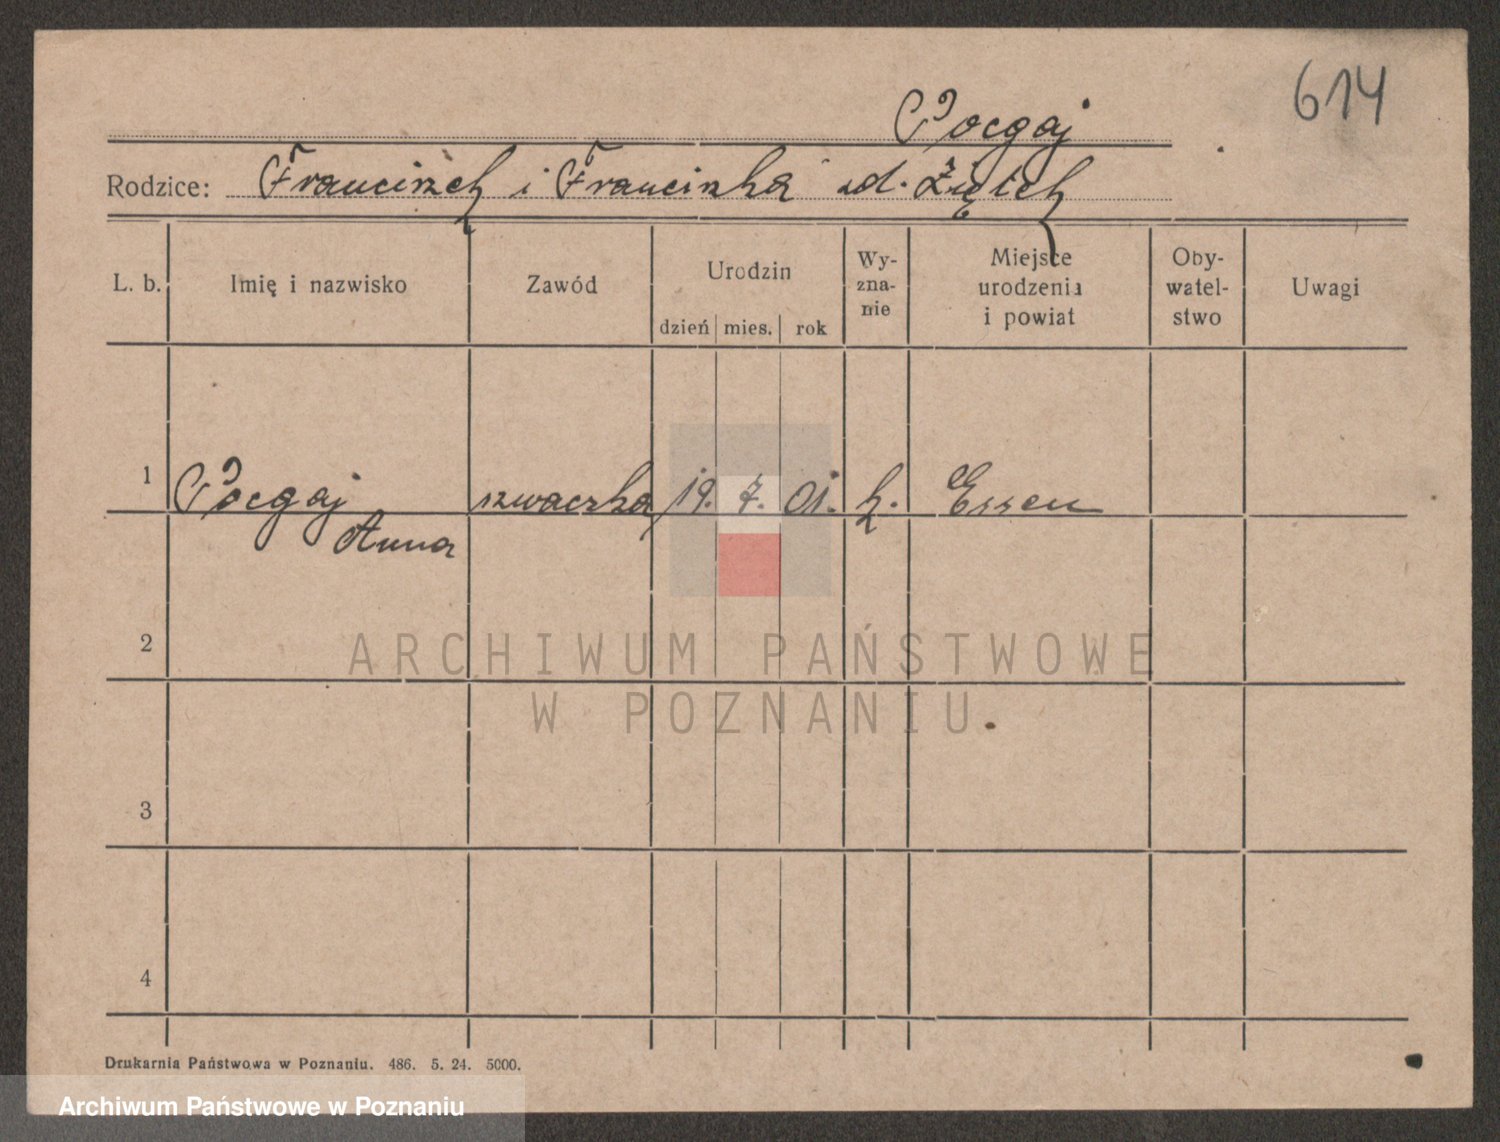 614
Pocgaj
Rodzice: Franciszek i Franciszka ud. Ziętek
L. b. Imię i nazwisko Zawód Urodzin dzień mies. rok Wy-zna-nie Miejsce urodzenia i powiat Oby-watel-stwo Uwagi
1 Pocgaj szwaczka 19. 7. 01. k. Essen
Anna
2
ARCHIWUM PAŃSTWOWE
W POZNANIU
3
4
Drukarnia Państwowa w Poznaniu. 486. 5. 24. 5000.
Archiwum Państwowe w Poznaniu